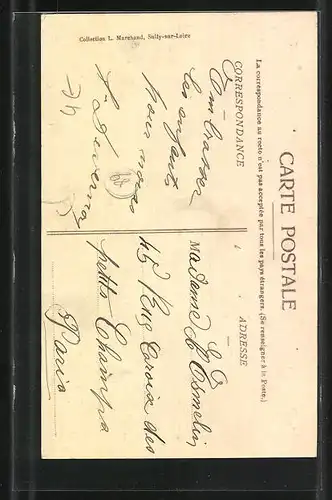 CARTE POSTALE
La correspondance au recto n'est pas acceptée par tous les pays étrangers. (Se renseigner à la Poste.)
CORRESPONDANCE
Embrasser
les enfants
Nous
ADRESSE
Madame
45 Rue Croix des
petits Champs
Paris
Collection L. Marchand, Sully-sur-Loire